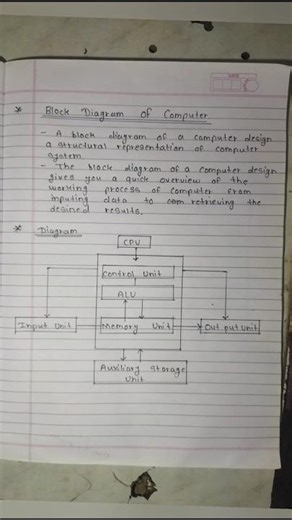 * Block Diagram of Computer
- A block diagram of a computer design
a structural representation of computer
system.
- The block diagram of a computer design
gives you a quick overview of the
working process of computer from
inputing data to retrieving the
desined results.
* Diagram
CPU
Control Unit
ALU
Input Unit
Memory Unit
Out put unit
Auxiliary Storage
Unit